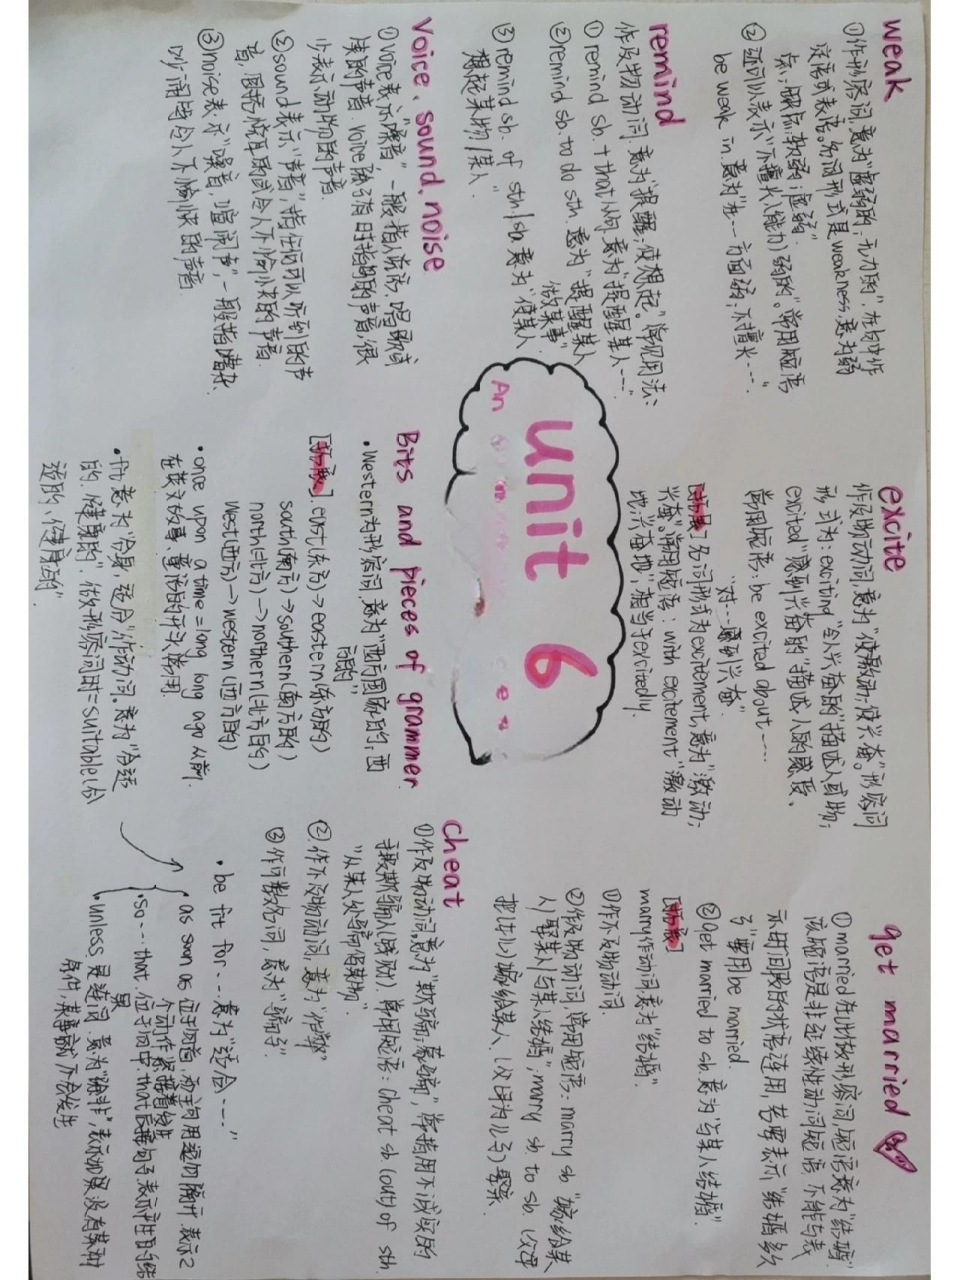 weak
①作形容词,意为"虚弱的,无力的",在句中作
定语或表语。名词形式是weakness,意为弱
点;缺点;软弱;虚弱.
②还可以表示"不擅长(能力)弱的"。常用短语
be weak in.意为"在…方面弱;不擅长…."
remind
作及物动词,意为"提醒;使想起"。常见用法:
① remind sb. + that从句 意为"提醒某人…."
②remind sb. to do sth. 意为"提醒某人
做某事"
③ remind sb. of sth/sb 意为"使某人
想起某物/某人"
Voice、sound、noise
①voice表示"嗓音",一般指人说话、唱歌或
笑的声音. voice除了有时指鸟的声音,很
少表示动物的声音
②sound表示"声音",指任何可以听到的声
音,
③noice表示"噪音,喧闹声",一般指嘈杂、
吵闹的令人不愉快的声音
unit 6
An
excite
作及物动词,意为"使激动;使兴奋"。形容词
形式为:exciting"令人兴奋的"描述人或物;
excited"感到兴奋的"描述人的感受、
常用短语:be excited about….
"对…感到兴奋"
[拓展]名词形式为excitement,意为"激动;
兴奋"。常用短语:with excitement"激动
地;兴奋地",相当于excitedly.
Bits and pieces of grammer
•Western为形容词,意为"西方国家的,西
方的"
[拓展] east(东方)→eastern(东方的)
south(南方)→southern(南方的)
north(北方)→nothern(北方的)
west(西方)→western(西方的)
•once upon a time=long long ago 从前.
在故事,童话的开头常用.
•fit意为"合身,适合"作动词。意为"合适
的,健康的",做形容词时=suitable(合
适的、健康的".
get married
①married在此做形容词,短语意为"结婚"
该短语是非延续性动词短语 不能与表
示时间段的状语连用,若要表示"结婚多久
了"要用be married.
②get married to sb 意为"与某人结婚".
[拓展]
marry作动词意为"结婚".
①作不及物动词.
②作及物动词,常用短语:marry sb "嫁给某
人/娶某人/与某人结婚";marry sb. to sb. (父母
把女儿)嫁给某人、(父母为儿子)娶亲.
cheat
①作及物动词,意为"欺骗;蒙骗",常指用不诚实的
手段欺骗人(钱财). 常用短语:cheat sb (out) of sth
"从某人处骗取某物".
②作不及物动词,意为"作弊"
③作可数名词,意为"骗子".
•be fit for…意为"适合…"
•as soon as 应主句后,与主句用逗勿隔开 表示2
个动作紧接着发生
•so…that. 位于句中.that后接句子表示产生的结
果
•unless 是连词 意为"除非",表示如果没有某种
条件,某事就不会发生